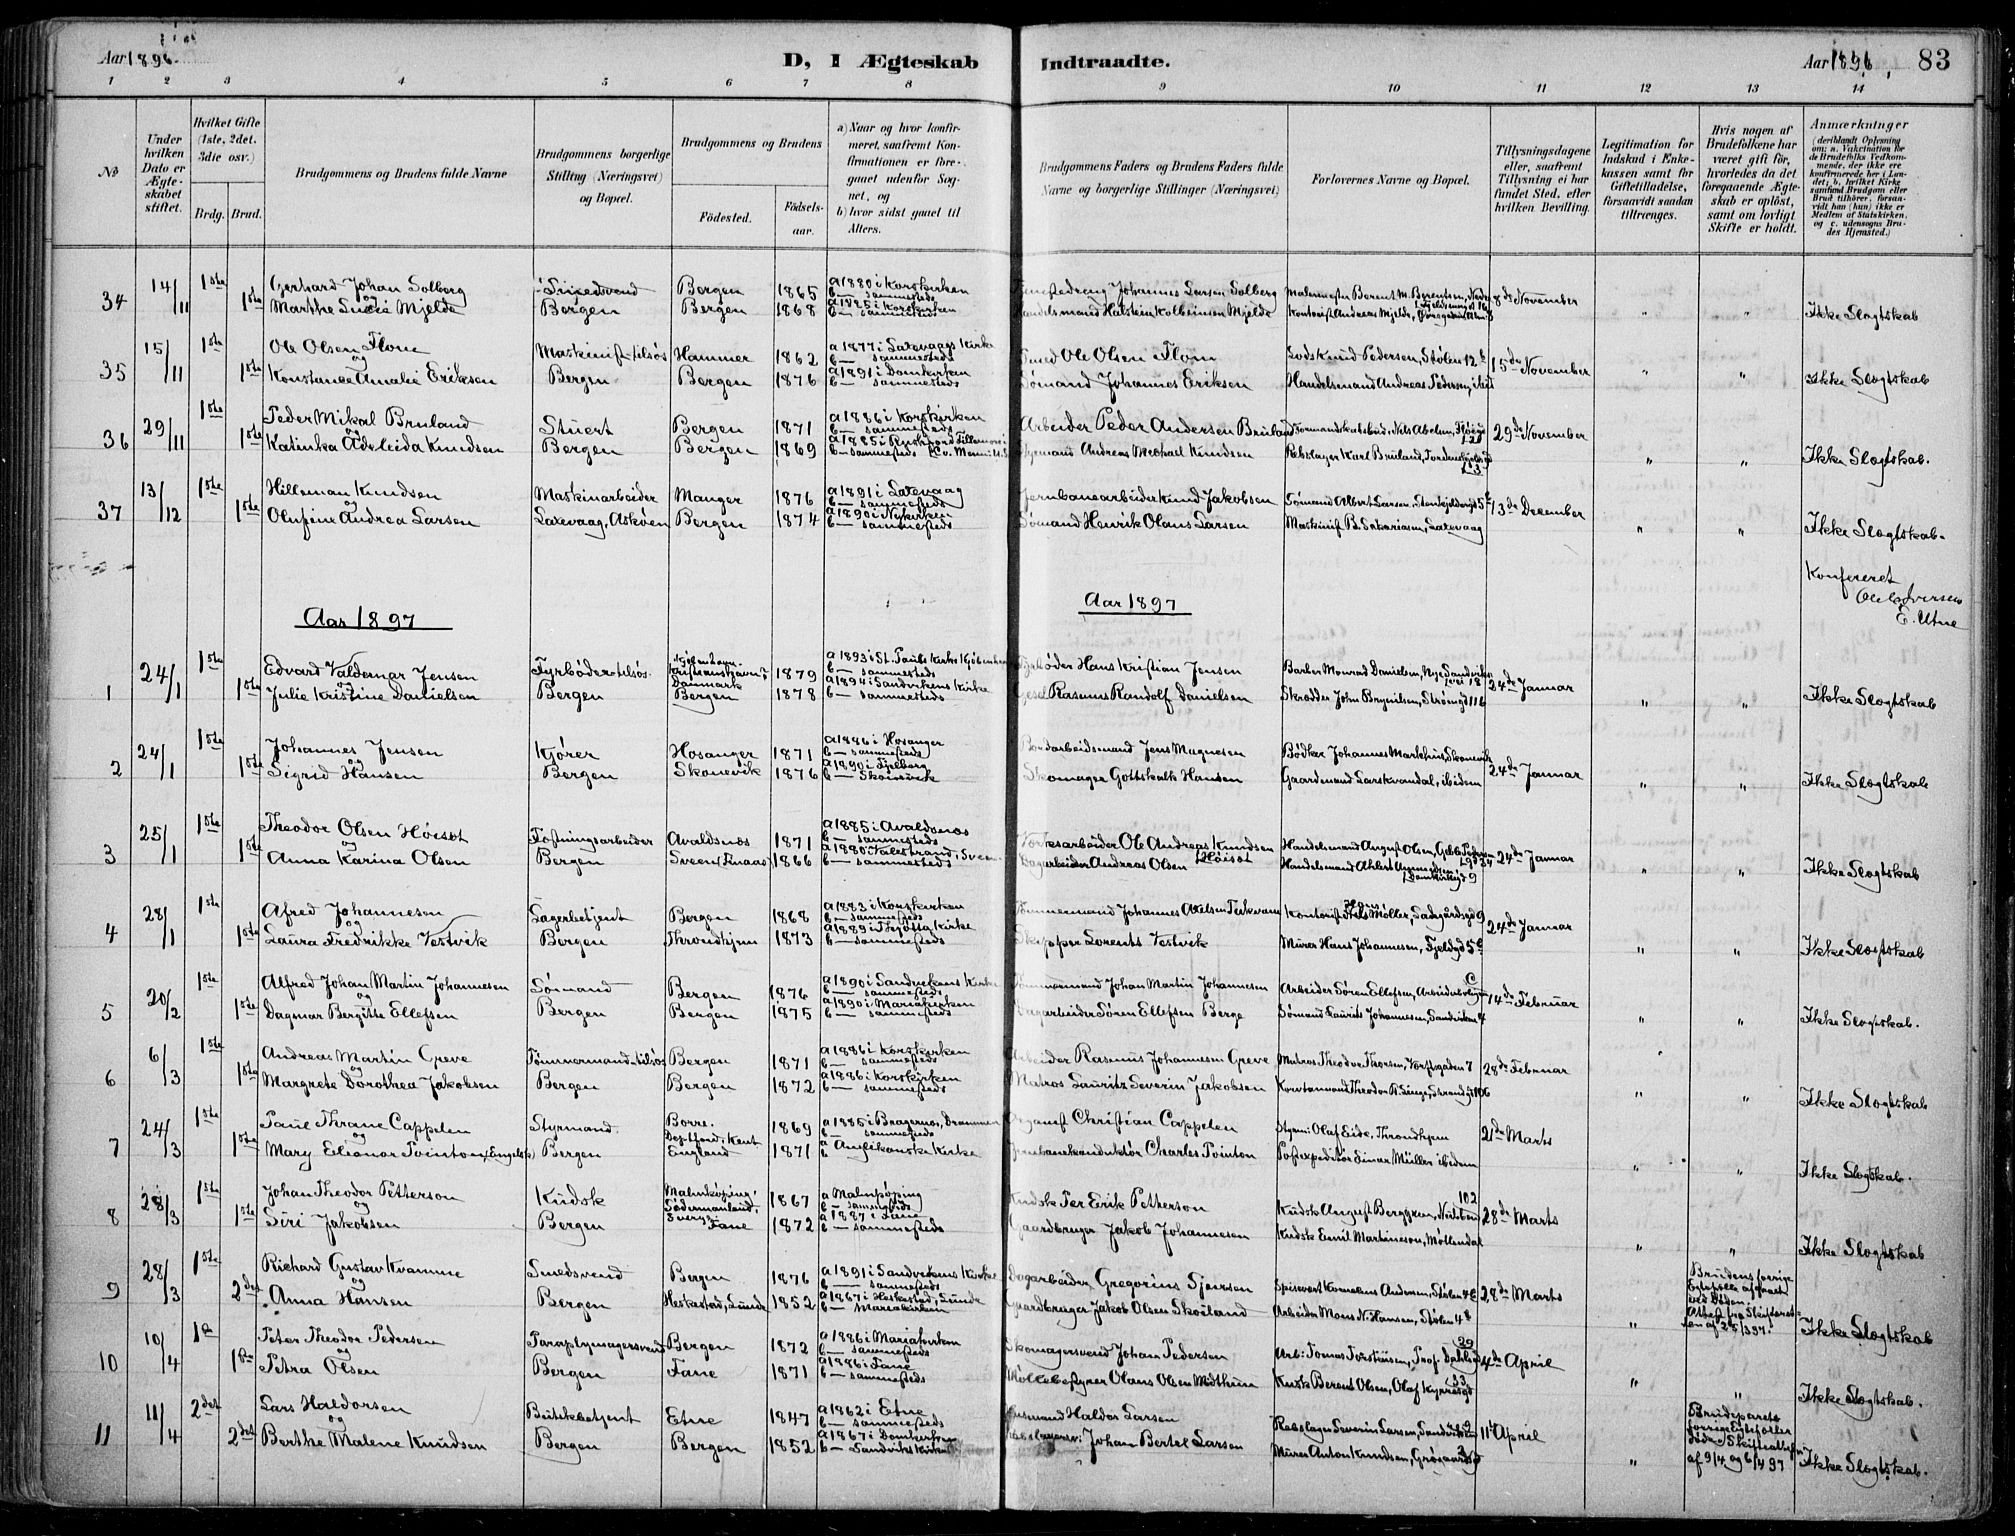 Aar 1896.
D, I Ægteskab Indtraadte.
Aar 1896
83
1 2 3 4 5 6 7 8 9 10 11 12 13 14
No
Under hvilken Dato er Ægteskabet stiftet.
Hvilket Gifte (1ste, 2det. 3die osv.)
Brdg. Brud.
Brudgommens og Brudens fulde Navne
Brudgommens borgerlige Stilling (Næringsvei) og Bopæl.
Brudgommens og Brudens
Fødested.
Fødselsaar.
a) Naar og hvor konfirmeret, saafremt Konfirmationen er foregaaet udenfor Sognet, og
b) hvor sidst gaaet til Alters.
Brudgommens Faders og Brudens Faders fulde Navne og borgerlige Stillinger (Næringsvei)
Forlovernes Navne og Bopæl.
Tillysningsdagene eller, saafremt Tillysning ei har fundet Sted, efter hvilken Bevilling.
Legitimation for Indskud i Enkekassen samt for Giftetilladelse, forsaavidt saadan tiltrænges.
Hvis nogen af Brudefolkene har været gift før, hvorledes da det foregaaende Ægteskab er opløst, samt om lovligt Skifte er holdt.
Anmærkninger
34 14/11 1ste Gerhard Johan Solberg Bergen 1865 a 1880 i Korskirken b — sammesteds Johannes Larsen Solberg Malermester Berent M. Berentsen, 8de November
og 1ste Marthe Lucie Mjelde Bergen Bergen 1868 a 1885 i Korskirken b — sammesteds Handelsmand Halstein Kolbeinsen Mjelde Kontorist Andreas Mjelde, " " Ikke Slægtskab
35 15/11 1ste Ole Olsen Flom Maskinist tilsøs Hammer 1862 a 1877 i Laxevaags Kirke b — sammesteds Smed Ole Olsen Flom Lods Knud Pedersen, Stølen 12 15de November
og 1ste Konstance Amalie Eriksen Bergen Bergen 1876 a 1891 i Domkirken b — sammesteds Sømand Johannes Eriksen Handelsmand Andreas Pedersen, " " Ikke Slægtskab
36 29/11 1ste Peder Mikal Bruland Stuert Bergen 1871 a 1886 i Korskirken b — sammesteds Arbeider Peder Andersen Bruland Nils Abelsen, 29de November
og 1ste Katinka Adeleida Knudsen Bergen Bergen 1869 a 1885 i b — sammesteds Styrmand Andreas Michael Knudsen Rebslager Karl Bruland, " " Ikke Slægtskab.
37 13/12 1ste Hilleman Knudsen Maskinarbeider Manger 1876 a 1891 i Laxevaag b — sammesteds Jernbanearbeider Knud Jakobsen Sømand Albert Larsen, 13de December
og 1ste Olufine Andrea Larsen Laxevaag, Askøen Bergen 1874 a 1890 i Nykirken b — sammesteds Sømand Henrik Olaus Larsen Maskinist B. Sakariasen, Laxevaag " " Ikke Slægtskab.
Konfereret
E. Utne
Aar 1897
Aar 1897
1 24/1 1ste Edvard Valdemar Jensen Fyrbøder tilsøs. Kjøbenhavn. Kristianshavn, Danmark 1879 a 1893 i St. Pauls Kirke Kjøbenhavn b — sammesteds Fyrbøder Hans Kristian Jensen Barber Monrad Danielsen, Nye Sandviksvei 18 24de Januar
og 1ste Julie Kristine Danielsen Bergen Bergen 1878 a 1894 i Sandvikens Kirke b — sammesteds Rasmus Randolf Danielsen Skrædder John Brynilsen, Strømgd 116 " " Ikke Slægtskab
2 24/1 1ste Johannes Jensen Kjører Hosanger 1871 a 1886 i Hosanger b — sammesteds Jens Magnesen Bødker Johannes Markhus, Skonevik 24de Januar
og 1ste Sigrid Hansen Bergen Skonevik 1876 a 1890 i Fjelberg b — Skonevik Skomager Gottskalk Hansen Gaardmand Lars Kvandal, ibidem " " Ikke Slægtskab
3 25/1 1ste Theodor Olsen Høisæt Fæstningsarbeider Avaldsnæs 1871 a 1885 i Avaldsnæs b — sammesteds Ole Andreas Knudsen Høisæt Handelsmand August Olsen, 24de Januar
og 1ste Anna Karina Olsen Bergen Sveen 1866 a 1880 Valestrand, Sveen b — sammesteds Dagarbeider Andreas Olsen Handelsmand Ahlert Domkirkegd 9 " " Ikke Slægtskab
4 28/1 1ste Alfred Johannesen Lagerbetjent Bergen 1868 a 1883 i Korskirken b — sammesteds Tømmermand Johannes Axelsen Kontorist Møller, Ladegårdsgd 9 24de Januar
og 1ste Laura Fredrikke Vestvik Bergen Throndhjem 1873 a 1889 i Thjøtta Kirke b — sammesteds Skipper Lorents Vestvik Murer Hans Johannesen, Fjeldgd 5 " " Ikke Slægtskab
5 20/2 1ste Alfred Johan Martin Johannesen Sømand Bergen 1876 a 1890 i Sandvikens Kirke b — sammesteds Tømmermand Johan Martin Johannesen Arbeider Søren Ellefsen, 14de Februar
og 1ste Dagmar Bergitte Ellefsen Bergen Bergen 1875 a 1890 i Mariakirken b — sammesteds Dagarbeider Søren Ellefsen Berge Sømand Laurits Johannesen, Sandviken 4 " " Ikke Slægtskab.
6 6/3 1ste Andreas Martin Greve Tømmermand tilsøs Bergen 1871 a 1886 i Korskirken b — sammesteds Arbeider Rasmus Johannesen Greve Matros Theodor Thorsen, 7 28de Februar
og 1ste Margrete Dorothea Jakobsen Bergen Bergen 1872 a 1886 i Korskirken b — sammesteds Matros Lauritz Severin Jakobsen Theodor R. Linge, Strandgd 106 " " Ikke Slægtskab
7 24/3 1ste Paul Thrane Cappelen Styrmand. Borre. 1869 a 1885 i Bragernes, Drammen b — sammesteds Organist Christian Cappelen Styrm: Olaf Eide, Throndhjem 21de Marts
og 1ste Mary Elianor Pointon (Engelsk) Bergen Deptford, Kent England 1871 a Anglikanske Kirke b Jernbanekonduktør Charles Pointon Postexpeditør Einar Müller ibidem " " Ikke Slægtskab.
8 28/3 1ste Johan Theodor Petterson Kudsk Malmköping, Södermanland, Sverige 1867 a Malmköping b — sammesteds Kudsk Per Erik Petterson Kudsk August Berggren, 102 28de Marts
og 1ste Siri Jakobsen Bergen Fane 1872 a 1887 i Fane b — sammesteds Gaardbruger Jakob Johannesen Kudsk Emil Martinson, Møllendal " " Ikke Slægtskab
9 28/3 1ste Richard Gustav Kvamme Smedsvend Bergen 1876 a 1891 i Sandvikens Kirke b — sammesteds Dagarbeider Gregorius Spisevært Andersen, Stølen 4 28de Marts Brudens forrige Egtefælle afgaaet ved Døden. Attest fra Skifteretten af 24/3 97.
og 2det Anna Hansen Bergen Heskestad, Lunde 1852 a 1867 i Heskestad, Lunde b — Mariakirken Gaardbruger Jakob Olsen Skoiland Arbeider Mons N. Hansen, Stølen 4 " Ikke Slægtskab
10 10/4 1ste Peter Theodor Pedersen Paraplymagersvend Bergen 1872 a 1886 i Mariakirken b — sammesteds Skomagersvend Johan Pedersen Arb: Tomas Torstensen, Prof. Dahlsgd 39 4de April
og 1ste Petra Olsen Bergen Fane 1871 a 1886 i Fane b — sammesteds Møllebestyrer Olaus Olsen Midthun Kudsk Berent Olsen, Olaf Kyrresgd 33 " " Ikke Slægtskab.
11 11/4 2det Lars Haldorsen Butikbetjent Etne 1847 a 1862 i Etne b — sammesteds Husmand Haldor Larsen Rebslager Severin Larsen, Sandviken 11te April Brudeparets forrige Egtefæller døde. Skifteattester af 9/4 og 6/4 97
og 2det Berthe Malene Knudsen Bergen Bergen 1852 a 1867 i Domkirken b — Sandviks Kirken Johan Bertel Larsen Murer Anton Knudsen, " Ikke Slægtskab.